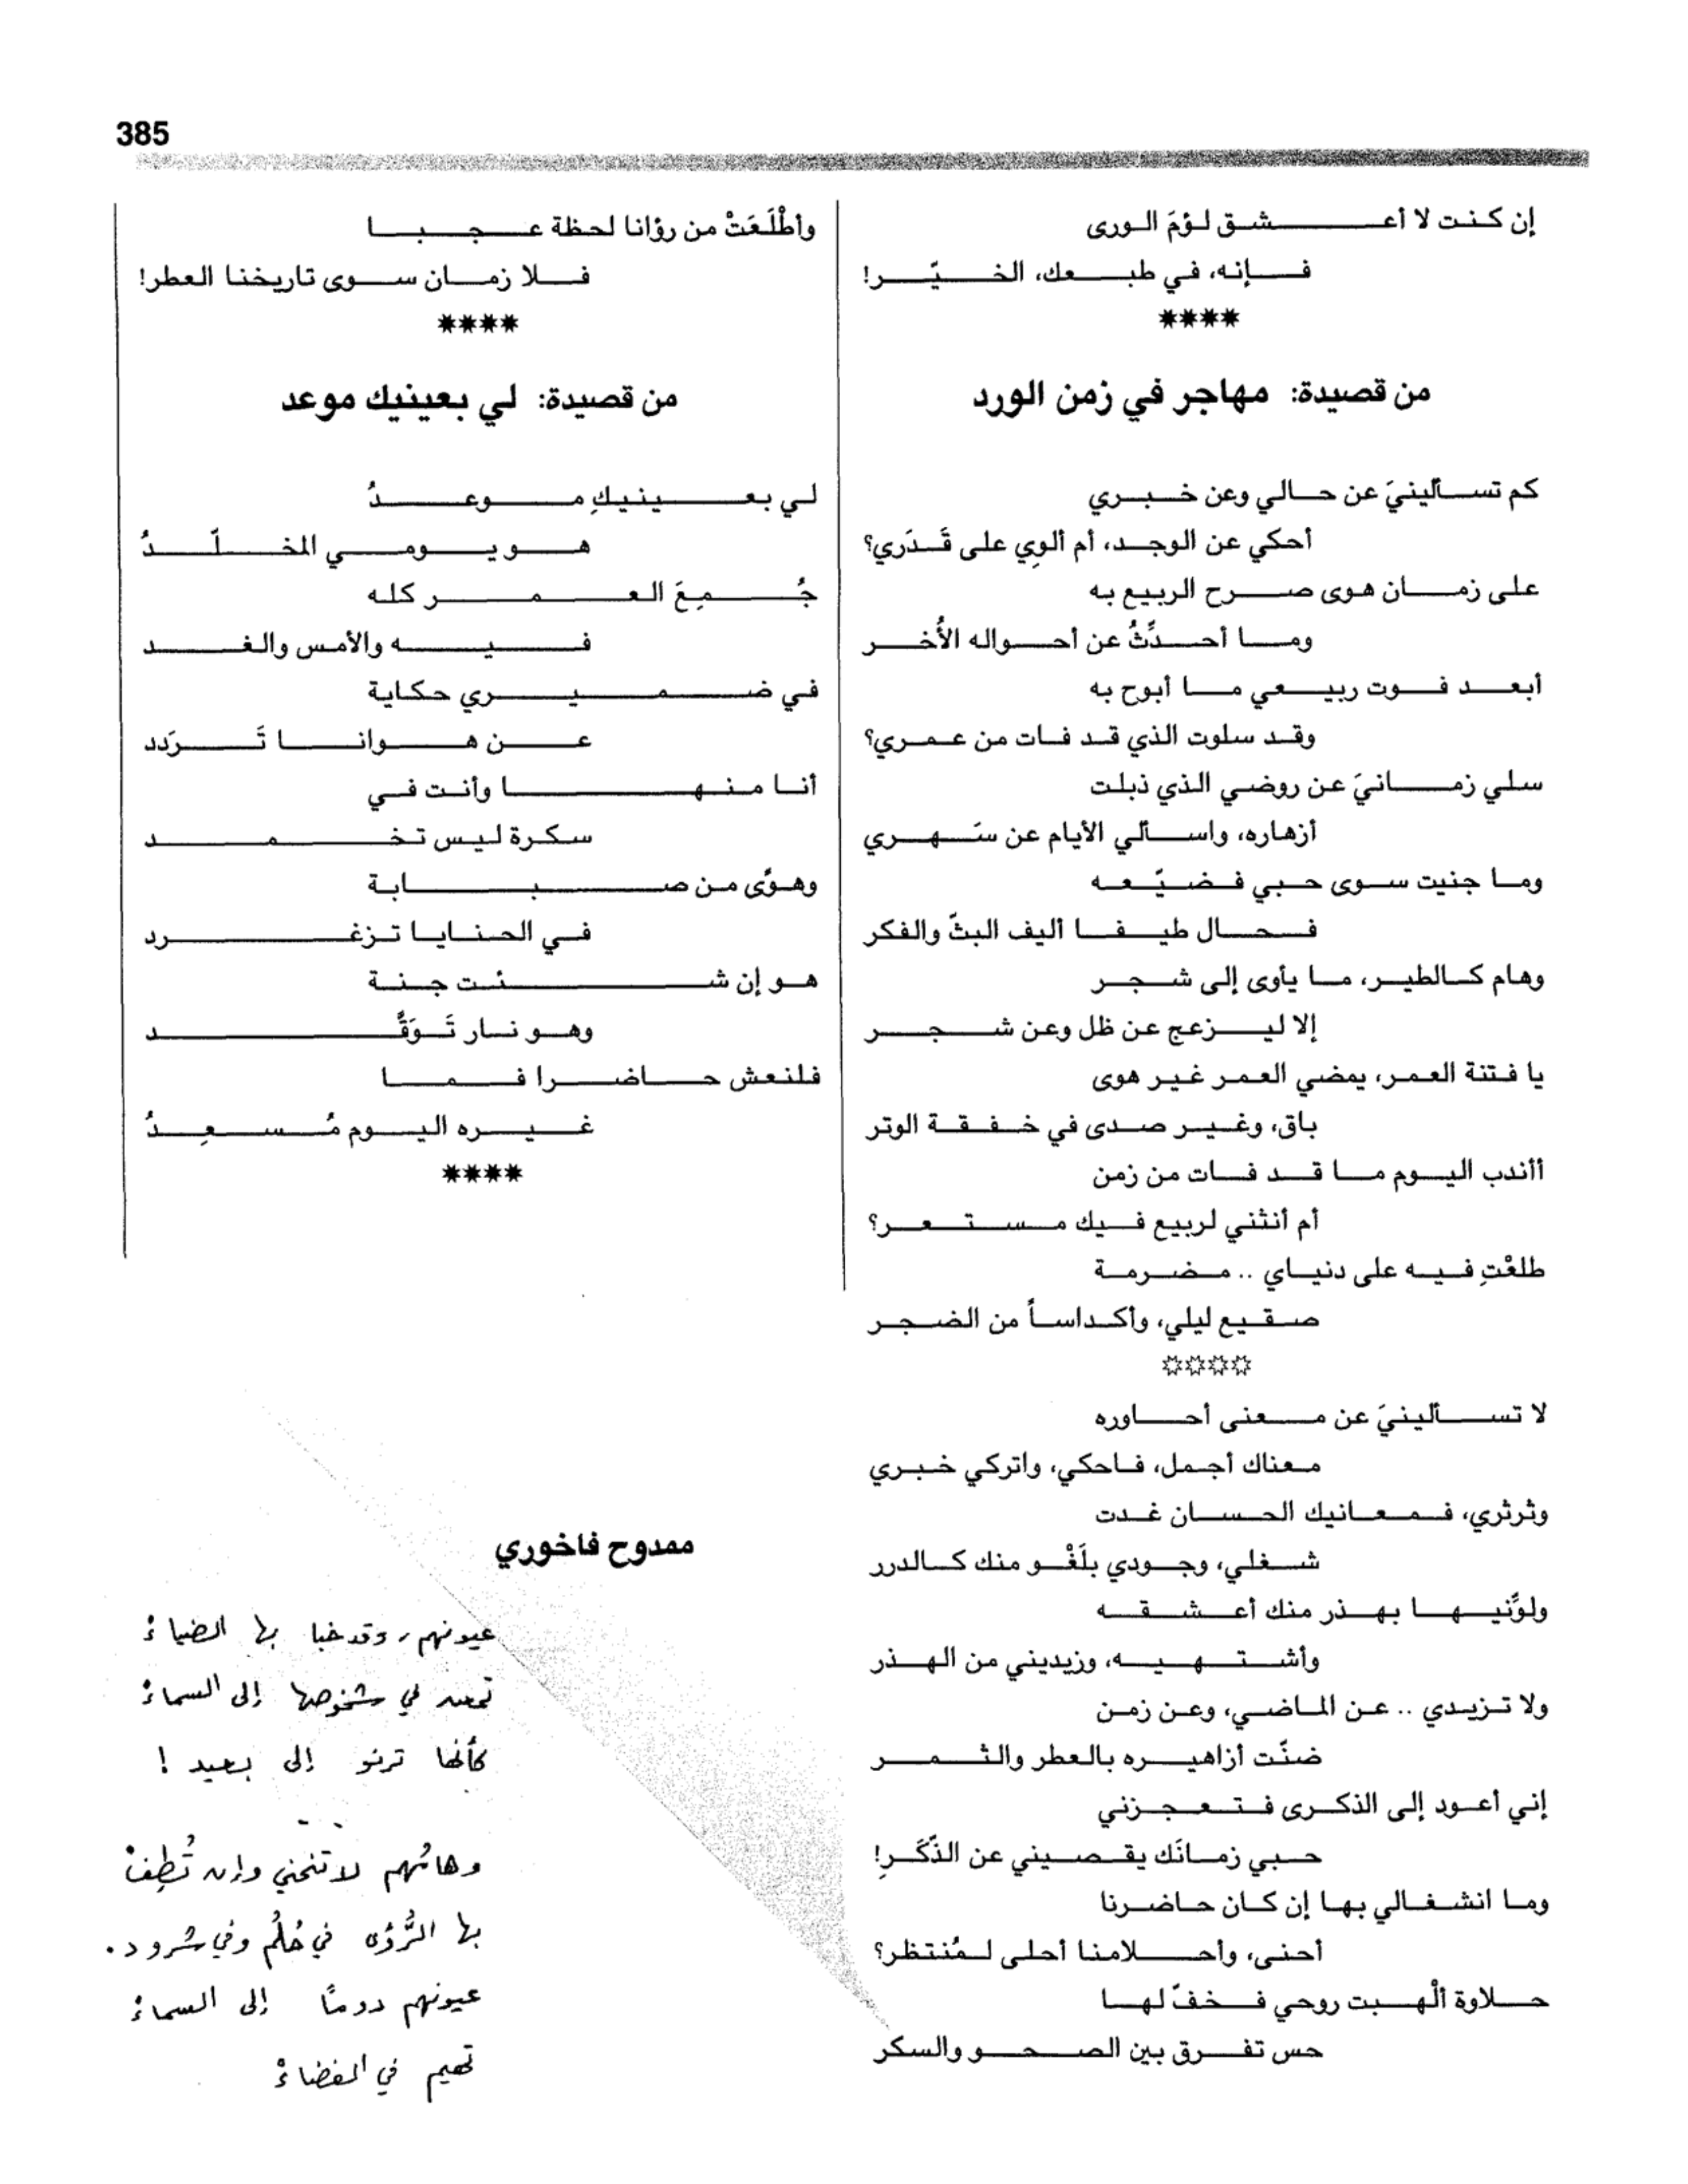 385
إن كنت لا أعشق لؤمَ الورى
فإنه، في طبعك، الخيّر!
****
من قصيدة: مهاجر في زمن الورد
كم تسألينيَ عن حالي وعن خبري
أحكي عن الوجد، أم ألوِي على قَدَري؟
على زمان هوى صرح الربيع به
وما أحدِّثُ عن أحواله الأُخر
أبعد فوت ربيعي ما أبوح به
وقد سلوت الذي قد فات من عمري؟
سلي زمانيَ عن روضي الذي ذبلت
أزهاره، واسألي الأيام عن سَهري
وما جنيت سوى حبي فضيّعه
فحال طيفا أليف البثّ والفكر
وهام كالطير، ما يأوى إلى شجر
إلا ليزعج عن ظل وعن شجر
يا فتنة العمر، يمضي العمر غير هوى
باق، وغير صدى في خفقة الوتر
أأندب اليوم ما قد فات من زمن
أم أنثني لربيع فيك مستعر؟
طلعْتِ فيه على دنياي .. مضرمة
صقيع ليلي، وأكداساً من الضجر
****
لا تسألينيَ عن معنى أحاوره
معناك أجمل، فاحكي، واتركي خبري
وثرثري، فمعانيك الحسان غدت
شغلي، وجودي بلَغْو منك كالدرر
ولوِّنيها بهذر منك أعشقه
وأشتهيه، وزيديني من الهذر
ولا تزيدي .. عن الماضي، وعن زمن
ضنّت أزاهيره بالعطر والثمر
إني أعود إلى الذكرى فتعجزني
حبي زمانَك يقصيني عن الذّكَرِ!
وما انشغالي بها إن كان حاضرنا
أحنى، وأحلامنا أحلى لمُنتظر؟
حلاوة ألْهبت روحي فخفّ لها
حس تفرق بين الصحو والسكر
وأطْلَعَتْ من رؤانا لحظة عجبا
فلا زمان سوى تاريخنا العطر!
****
من قصيدة: لي بعينيك موعد
لي بعينيكِ موعدُ
هو يومي المخلّدُ
جُمِعَ العمر كله
فيه والأمس والغد
في ضميري حكاية
عن هوانا تَرَدد
أنا منها وأنت في
سكرة ليس تخمد
وهوًى من صبابة
في الحنايا تزغرد
هو إن شئت جنة
وهو نار تَوَقَّد
فلنعش حاضرا فما
غيره اليوم مُسعِدُ
****
ممدوح فاخوري
عيونهم، وقد خبا بها الضياءْ
تمعن في شخوصها إلى السماءْ
كأنها ترنو إلى بعيد !
وهامُهم لا تنحني وإن تُطِفْ
بها الرُّؤى في حُلُم وفي شرود .
عيونهم دوماً إلى السماءْ
تهيم في الفضاءْ